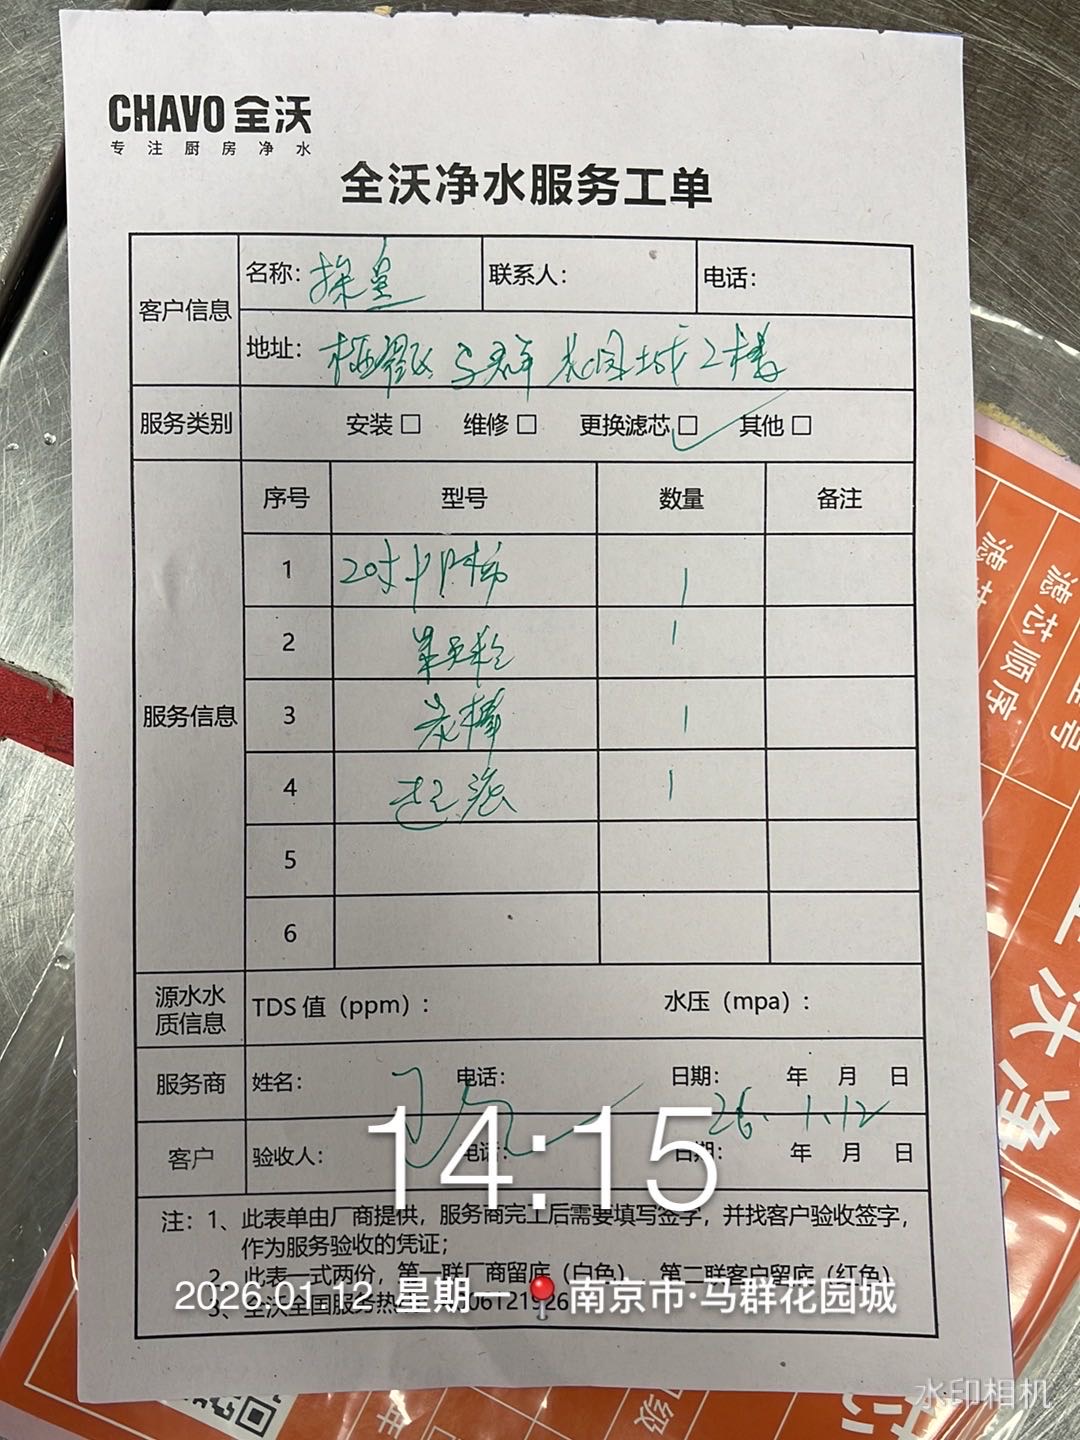 CHAVO 全沃
专注厨房净水
全沃净水服务工单
客户信息
名称：探皇
联系人：
电话：
地址：栖霞区马群花园城2楼
服务类别
安装□ 维修□ 更换滤芯□ 其他□
服务信息
序号 型号 数量 备注
1 20寸 1
2 1
3 炭棒 1
4 超滤 1
5
6
源水水质信息
TDS 值（ppm）： 水压（mpa）：
服务商
姓名： 电话： 日期： 年 月 日
26.1.12
客户
验收人： 电话： 日期： 年 月 日
14:15
注：1、此表单由厂商提供，服务商完工后需要填写签字，并找客户验收签字，
作为服务验收的凭证；
2、此表一式两份，第一联厂商留底（白色），第二联客户留底（红色）
3、全沃全国服务热
2026.01.12 星期一 南京市·马群花园城
滤芯顺序
滤芯顺序
型号
沃净
级
水印相机